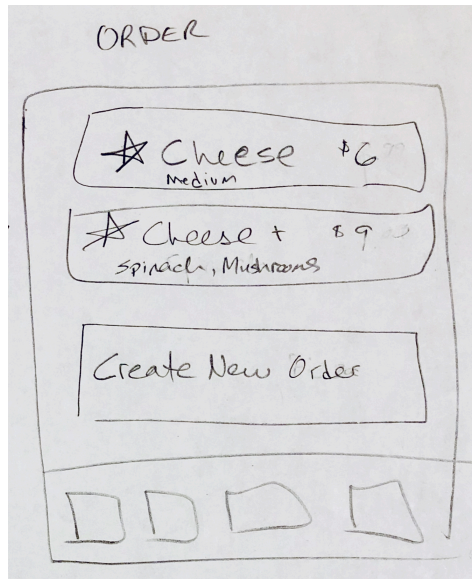 ORDER
Cheese $6
Medium
Cheese + $9
Spinach, Mushrooms
Create New Order